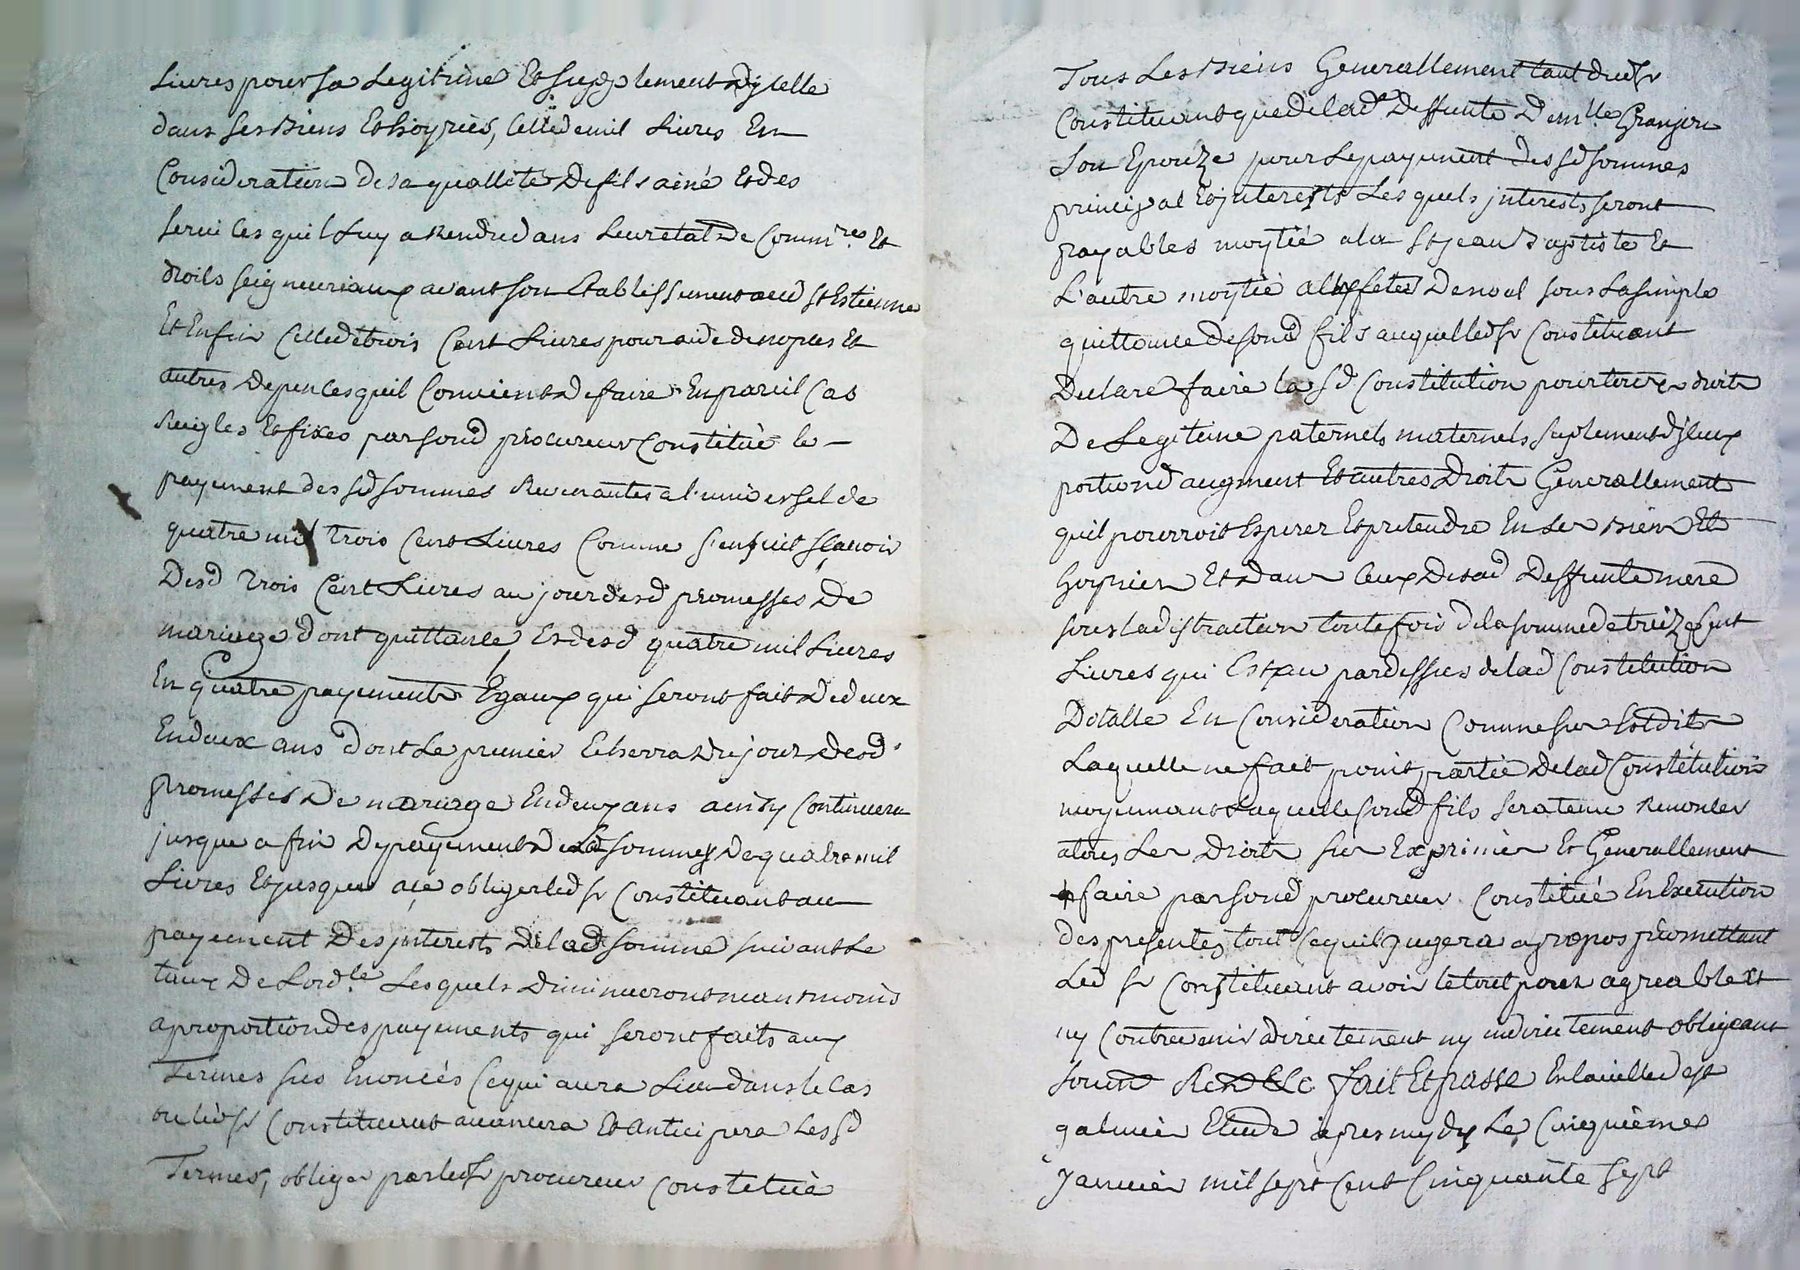 Livres pour sa Legitime Et supplement d'jcelle
dans ses Biens Et hoyries, Celle de mil Livres En
Consideration de sa quallité de fils ainé Et des
services quil Luy a Rendu dans Leur etat De Comm.res Et
droits seigneuriaux avant son Etablissement aud St Estienne
Et Enfin Celle de trois Cent Livres pour aide de nopces Et
autres depences quil Convient de faire En pareil Cas
Reigles Et fixés par sond procureur Constitué le
payement des sd sommes Revenantes a l'universel de
quatre mil trois Cent Livres Comme s'ensuit scavoir
Desd trois Cent Livres au jour desd promesses De
mariage dont quittance, Et desd quatre mil Livres
En quatre payements Egaux qui seront fait De deux
En deux ans dont Le premier Echerra du jour desd
promesses De mariage En deux ans ainsy Continuera
jusque a fin De payement de lad somme De quatre mil
Livres Et jusques a ce obliger led sr Constituant au
payement Des jnterests De lad somme suivant Le
taux De Lord.ce Lesquels Diminueront neantmoins
a proportion des payements qui seront faits aux
Termes sus Enoncés Ce qui aura Lieu dans le Cas
ou led sr Constituant avancera Et anticipera Les sd
Termes, obliger par led sr procureur Constitué
Tous Les Biens Generallement tant dud sr
Constituant que de lad.e Deffunte Dem.lle Granjon
son Epouze pour Le payement des sd sommes
principal Et jnterests Lesquels jnterests seront
payables moytié a la St jean Baptiste Et
L'autre moytié aux fetes De noel sous La simple
quittance de sond fils auquel led sr Constituant
Declare faire la sd Constitution pour tous ses droits
De Legitime paternels maternels suplement d'jceux
portion d'augment Et autres Droits Generallement
quil pourroit Esperer Et pretendre En ses Biens Et
hoyries Et dans Ceux De sad Deffunte mere
sous la distraction toute fois de la somme de treize Cent
Livres qui Est au pardessus de lad Constitution
Dotalle En Consideration Comme sus Est dit
Laquelle ne fait point partie de lad Constitution
moyennant Laquelle sond fils sera tenu Renoncer
a tous Les Droits sus Exprimés Et Generallement
faire par sond procureur Constitué En Execution
des presentes, tout Ce quil jugera a propos promettant
Led sr Constituant avoir le tout pour agreable Et
ny Contrevenir directement ny indirectement obligeant
soum Ren &c fait Et passé En la ville de St
galmier Etude apres mydy Le Cinquième
Janvier mil sept Cent Cinquante sept